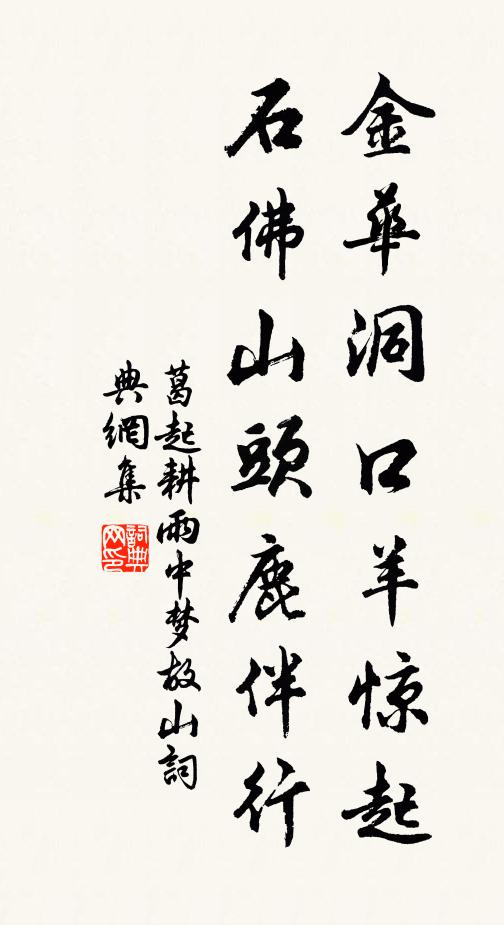 金華洞口羊惊起
石佛山頭鹿伴行
葛起耕雨中梦故山詞
典網集
詞典
网印